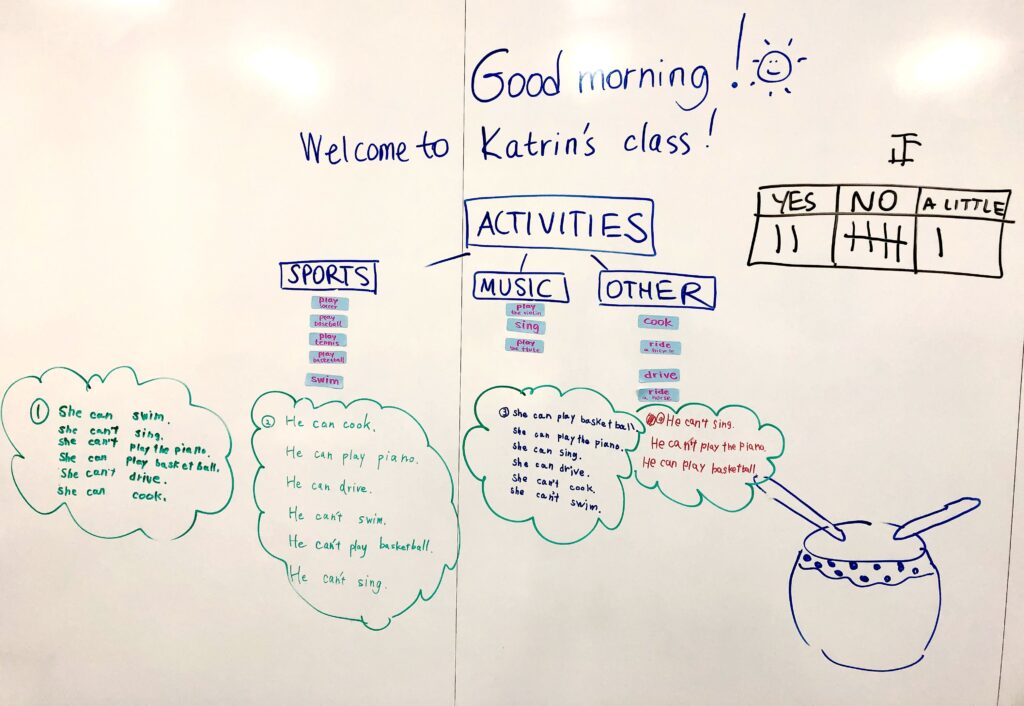 Good morning!
Welcome to Katrin's class!
正
YES NO A LITTLE
ACTIVITIES
SPORTS
play
soccer
play
baseball
play
tennis
play
basketball
swim
MUSIC
play
the violin
sing
play
the flute
OTHER
cook
ride
a bicycle
drive
ride
a horse
① She can swim.
She can't sing.
She can't play the piano.
She can play basketball.
She can't drive.
She can cook.
② He can cook.
He can play piano.
He can drive.
He can't swim.
He can't play basketball.
He can't sing.
③ She can play basketball.
She can play the piano.
She can sing.
She can drive.
She can't cook.
She can't swim.
He can't sing.
He can't play the piano.
He can play basketball